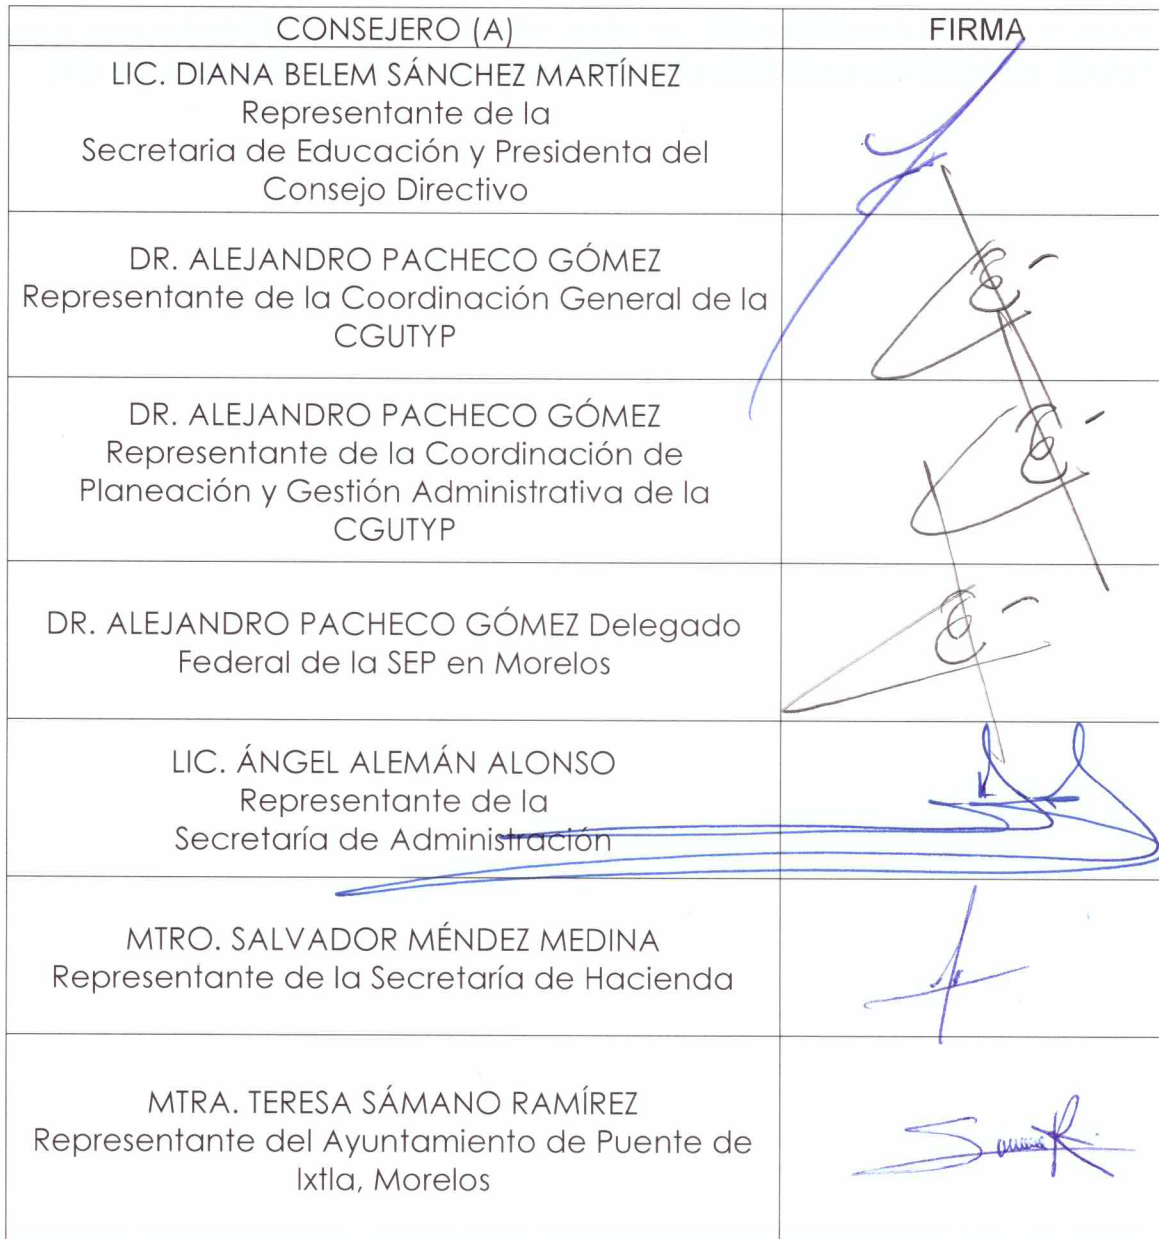 CONSEJERO (A)
FIRMA
LIC. DIANA BELEM SÁNCHEZ MARTÍNEZ
Representante de la
Secretaria de Educación y Presidenta del
Consejo Directivo
DR. ALEJANDRO PACHECO GÓMEZ
Representante de la Coordinación General de la
CGUTYP
DR. ALEJANDRO PACHECO GÓMEZ
Representante de la Coordinación de
Planeación y Gestión Administrativa de la
CGUTYP
DR. ALEJANDRO PACHECO GÓMEZ Delegado
Federal de la SEP en Morelos
LIC. ÁNGEL ALEMÁN ALONSO
Representante de la
Secretaría de Administración
MTRO. SALVADOR MÉNDEZ MEDINA
Representante de la Secretaría de Hacienda
MTRA. TERESA SÁMANO RAMÍREZ
Representante del Ayuntamiento de Puente de
Ixtla, Morelos